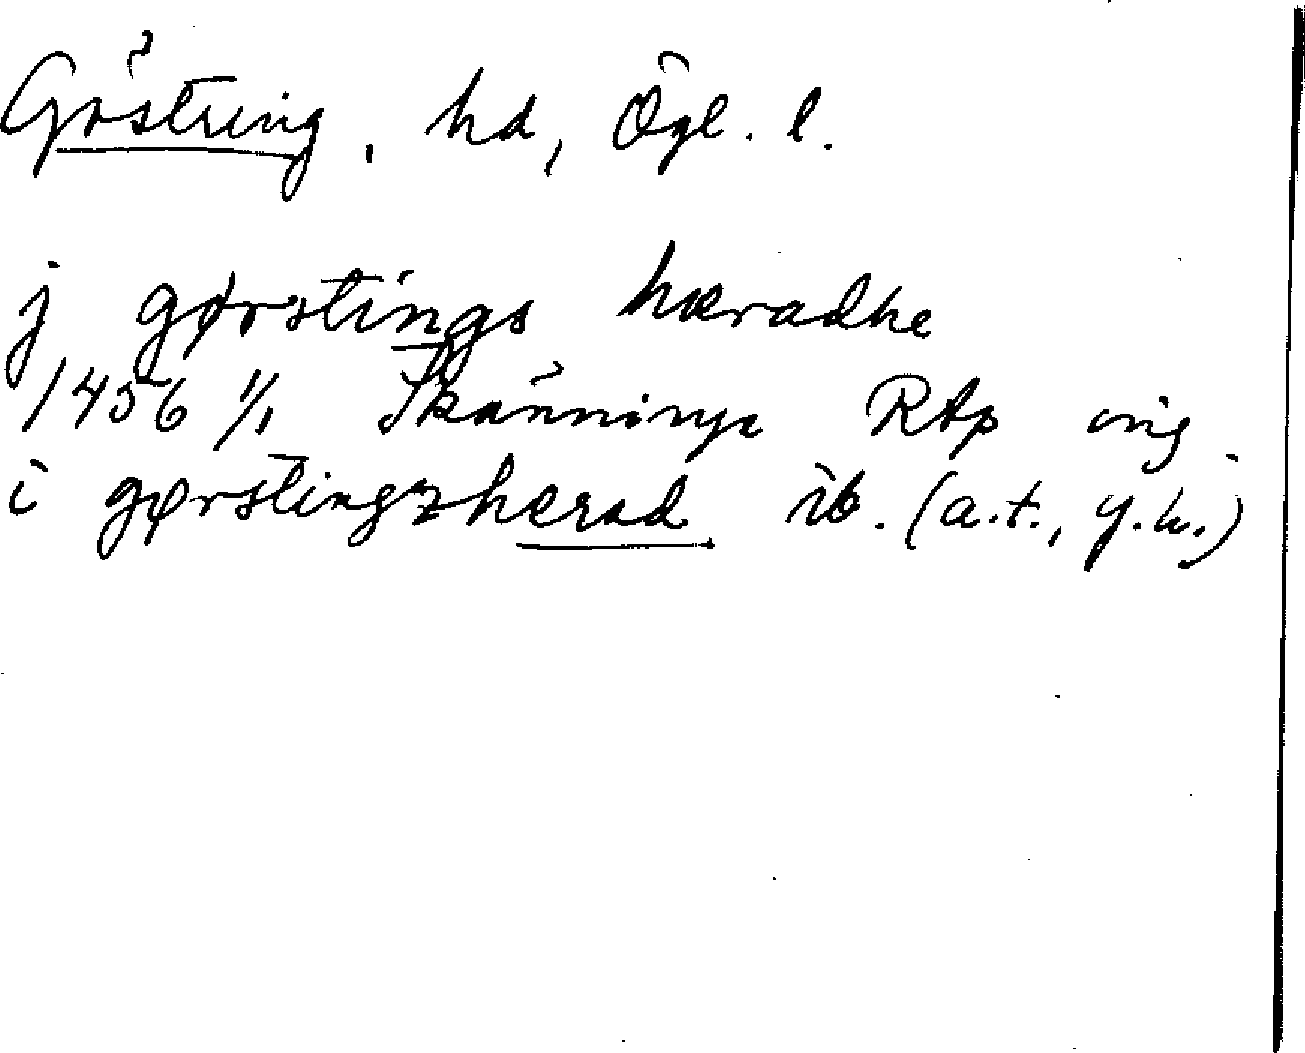 Göstring, hd, Ögl. l.
j gørstings hæradhe
1456 1/1 Skänninge RAp orig
i gørstingzherad ib. (a.t., y.h.)